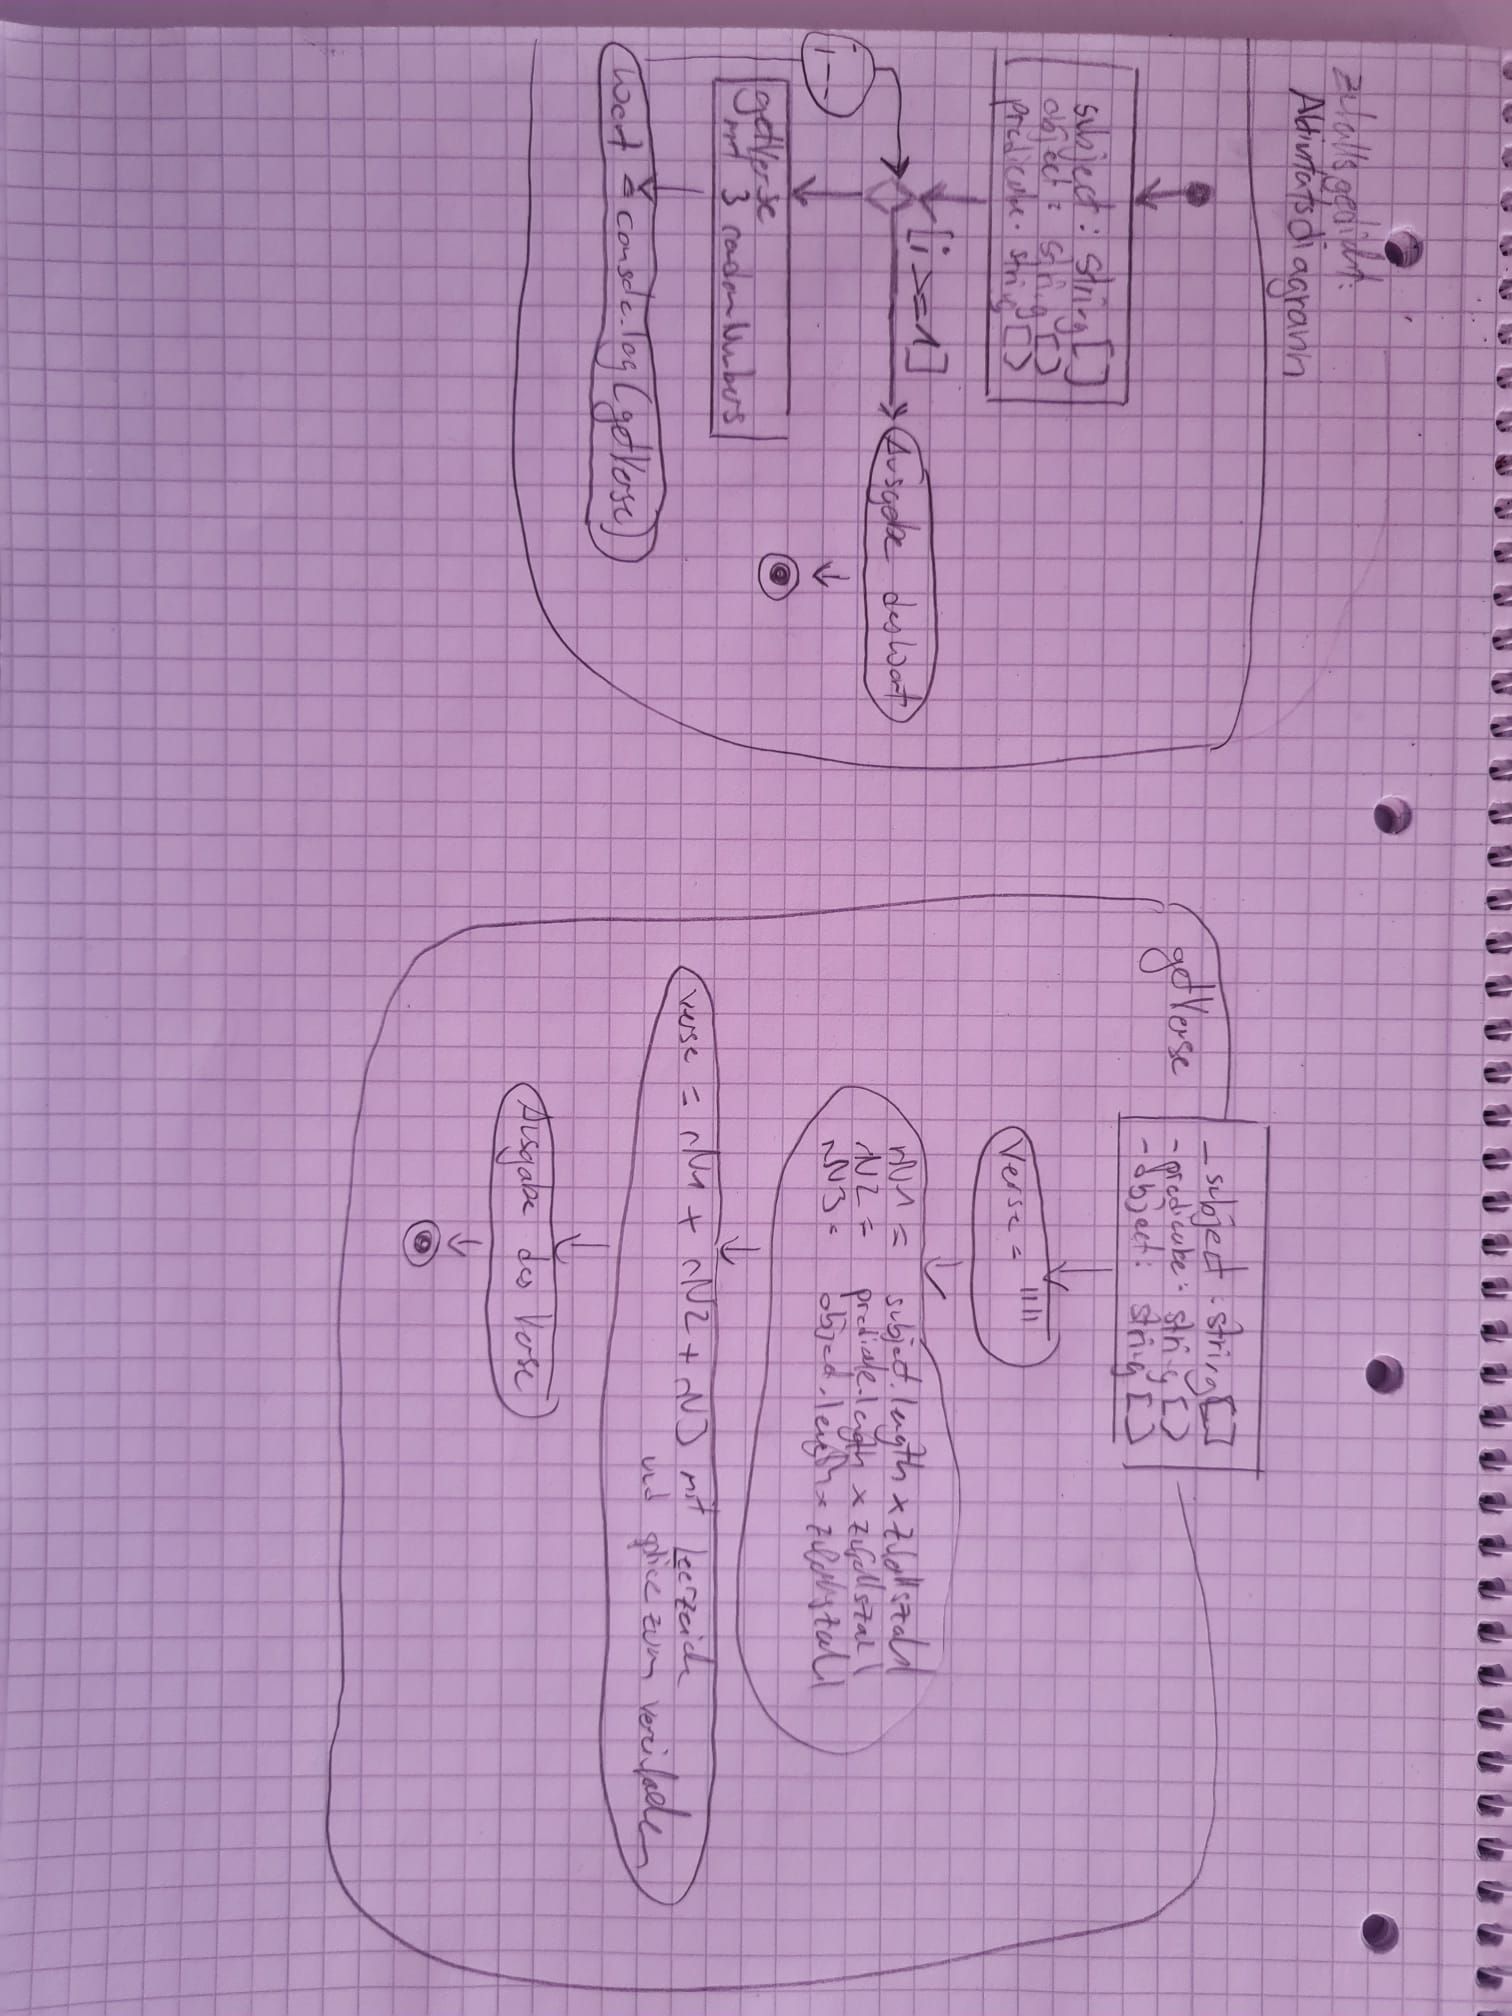 Zufallsgedicht:
Aktivitätsdiagramm
subject : string []
object : string []
predicube : string []
[i >= 1]
i--
Ausgabe des Wort
getVerse
mit 3 randomNumbers
Wort = console.log(getVerse)
getVerse
- subject : string []
- predicube : string []
- object : string []
Verse = ""
rN1 = subject.length x zufallszahl
rN2 = predicate.length x zufallszahl
rN3 = object.length x zufallszahl
Verse = rN1 + rN2 + rN3 mit Leerzeiche
und splice zum
Ausgabe des Verse